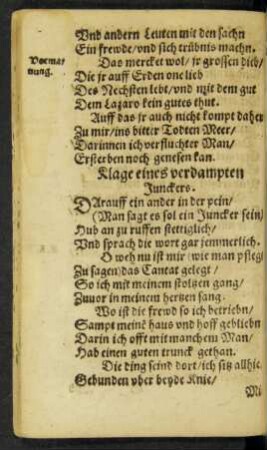 Vnd andern Leuten mit den sachn
Ein frewde/vnd sich trübnis machn.
Vormanung.
Das mercket wol/jr grossen dieb/
Die jr auff Erden one lieb
Des Nechsten lebt/vnd mit dem gut
Dem Lazaro kein gutes thut.
Auff das jr auch nicht kompt daher
Zu mir/ins bitter Todten Meer/
Darinnen ich verfluchter Man/
Ersterben noch genesen kan.
Klage eines verdampten
Junckers.
DArauff ein ander in der pein/
(Man sagt es sol ein Juncker sein)
Hub an zu ruffen stettiglich/
Vnd sprach die wort gar jemmerlich.
O weh nu ist mir (wie man pflegt
Zu sagen) das Cantat gelegt/
So ich mit meinem stoltzen gang/
Zuuor in meinem hertzen sang.
Wo ist die frewd so ich betriebn/
Sampt meinē haus vnd hoff gebliebn
Darin ich offt mit manchem Man/
Hab einen guten trunck gethan.
Die ding seind dort/ich sitz allhie
Gebunden vber beyde Knie/
Mi